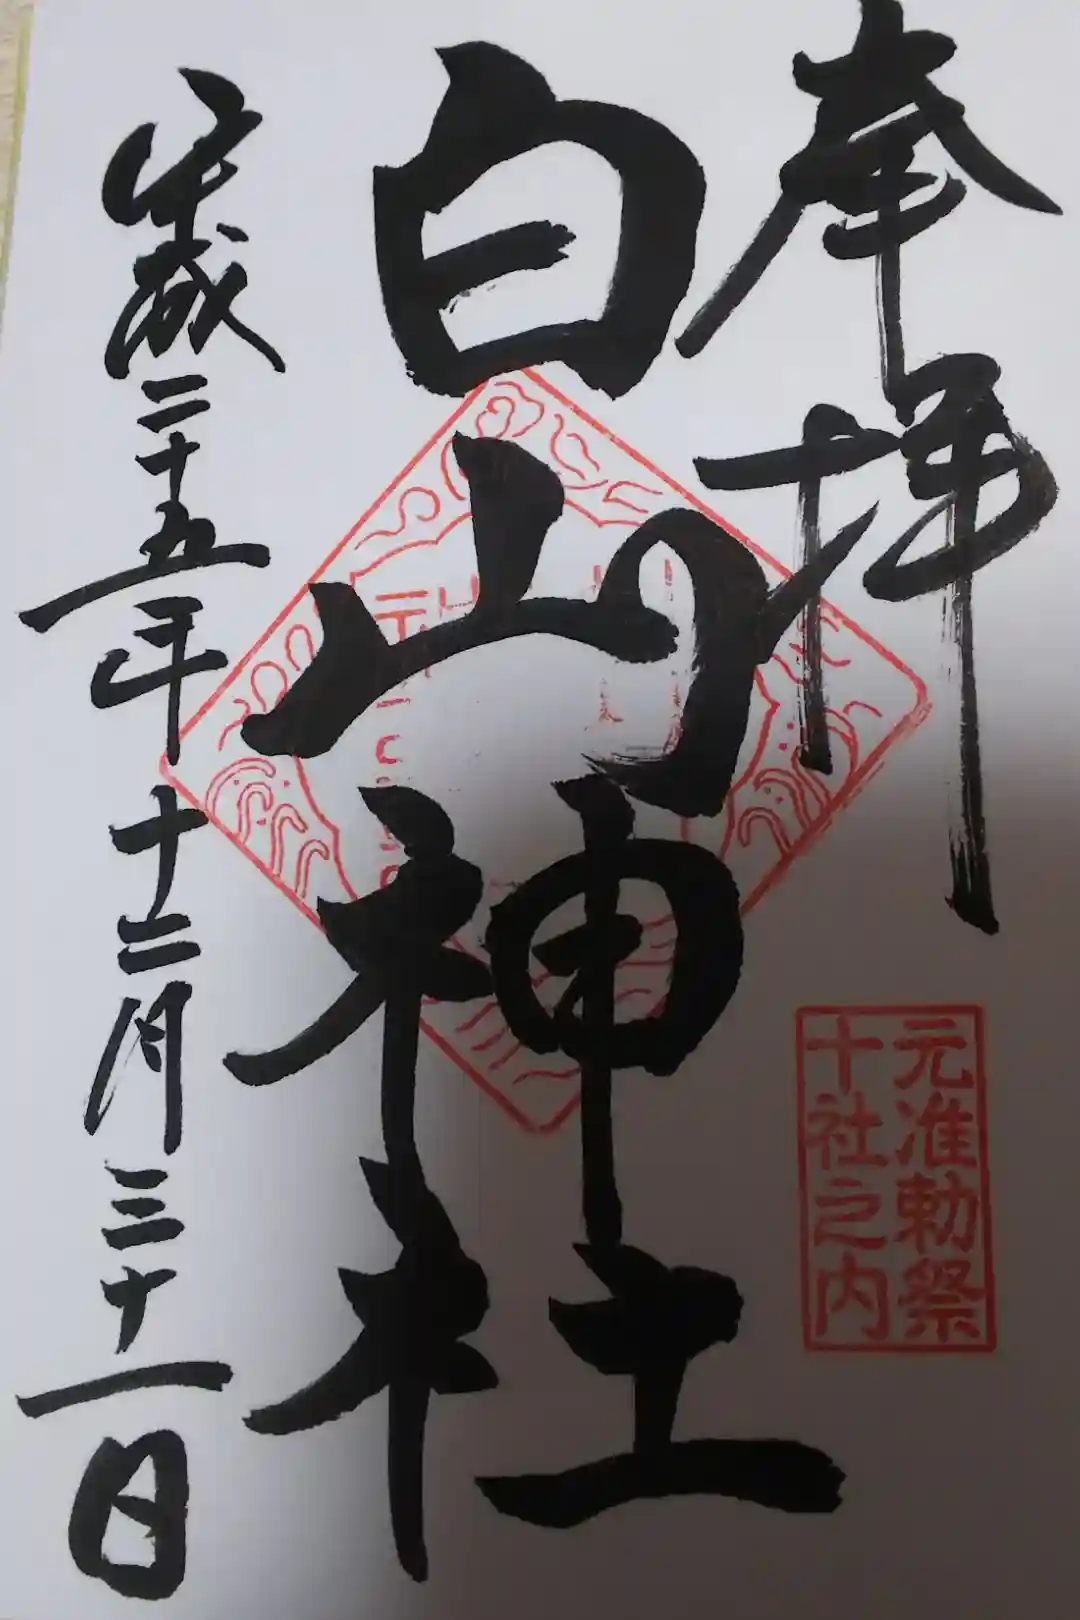 奉拝
元准勅祭
十社之内
白山神社
平成二十五年十二月三十一日